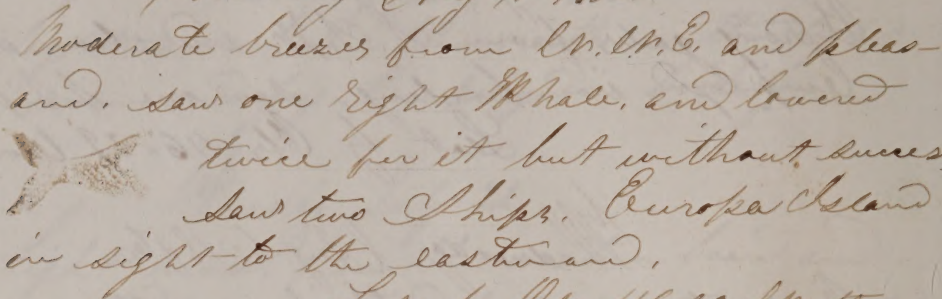 Moderate breezes from N.N.E. and pleas-
and. saw one right Whale. and lowered
twice for it but without succes
Saw two Ships. Europa Island
in sight to the eastward.